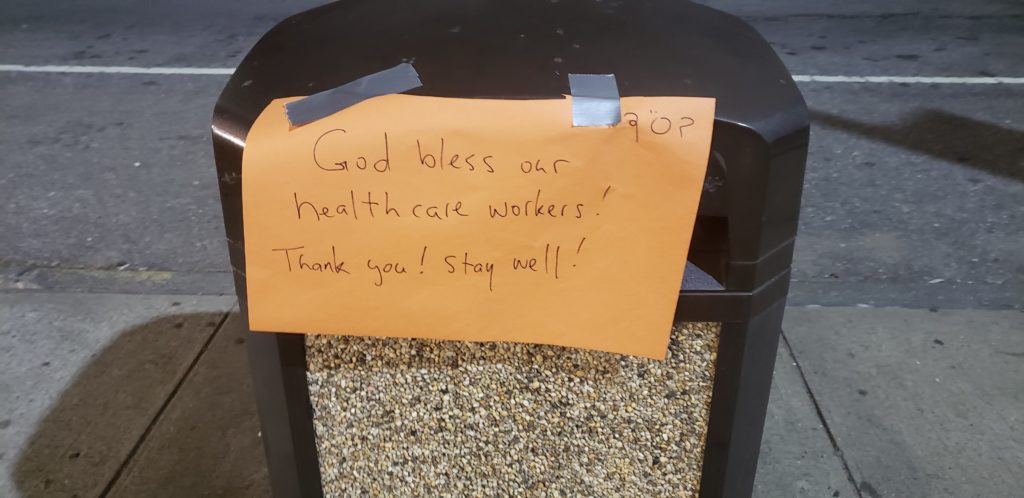 בס"ד
God bless our
healthcare workers!
Thank you! Stay well!